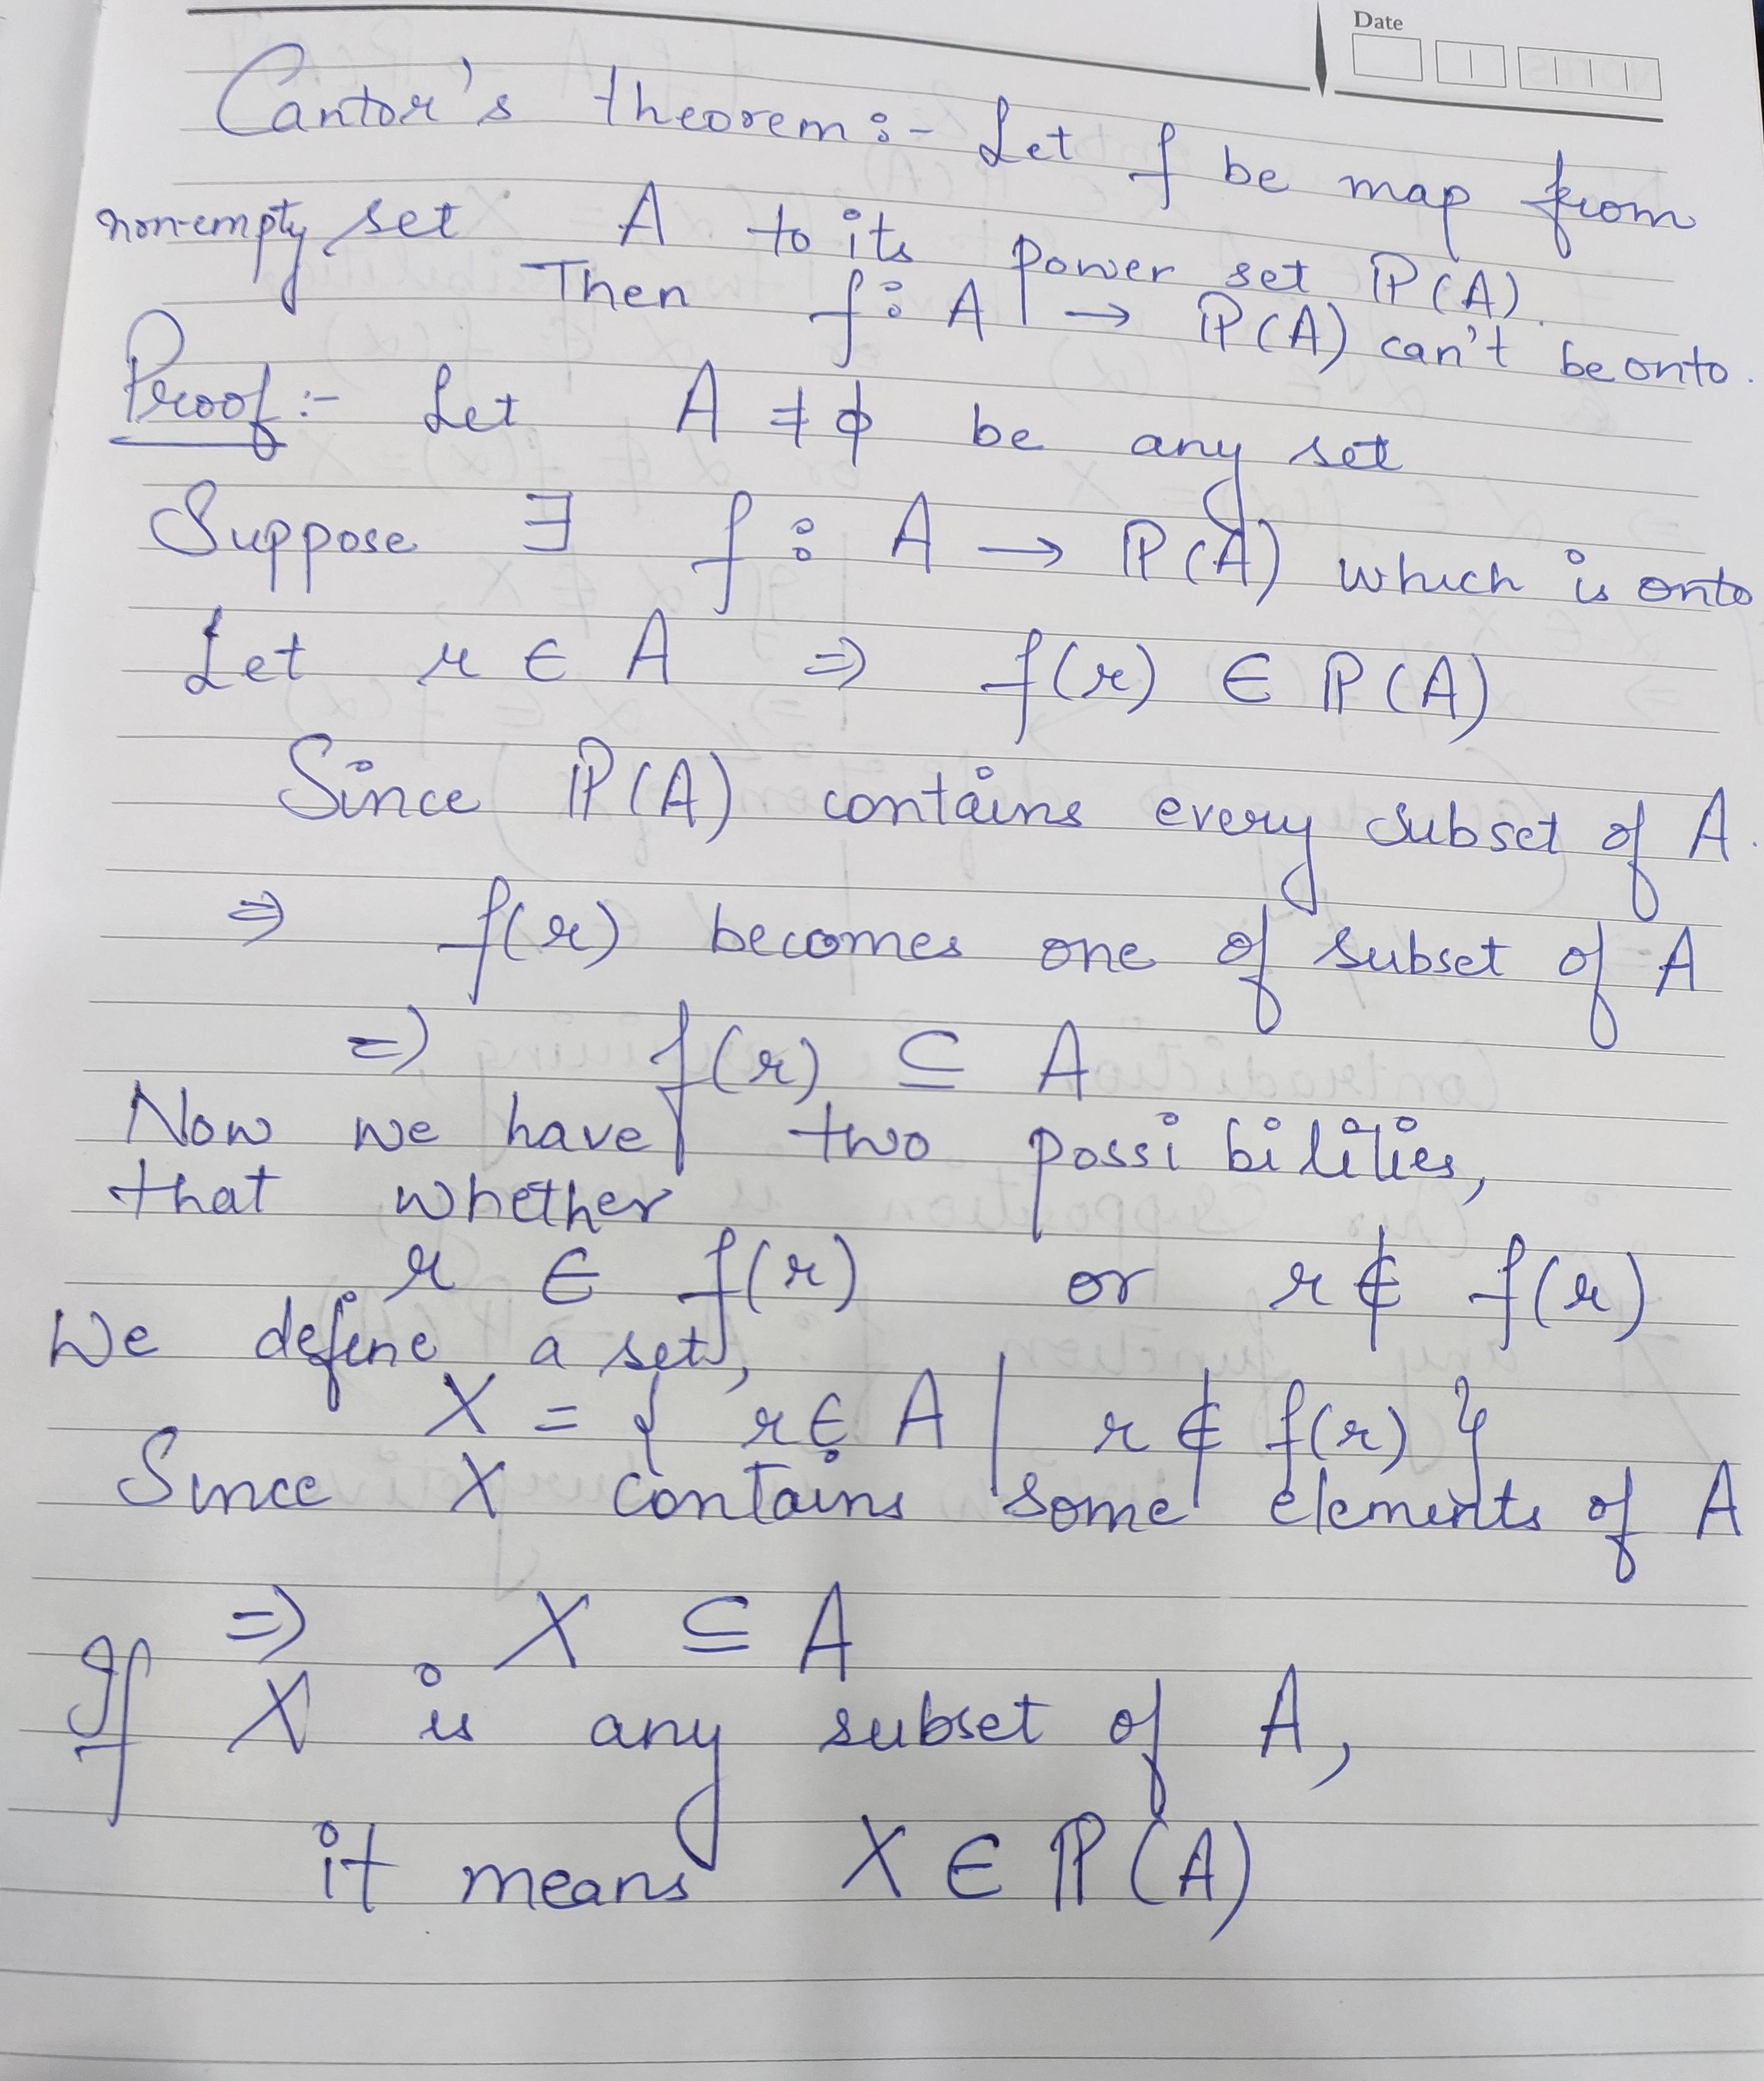 Date
Cantor's theorem :- Let f be map from
non-empty set A to its power set ℙ(A).
Then f : A → ℙ(A) can't be onto.
Proof :- Let A ≠ ϕ be any set
Suppose ∃ f : A → ℙ(A) which is onto
Let r ∈ A ⇒ f(r) ∈ ℙ(A)
Since ℙ(A) contains every subset of A.
⇒ f(r) becomes one of subset of A
⇒ f(r) ⊆ A
Now we have two possibilities,
that whether
r ∈ f(r) or r ∉ f(r)
We define a set,
X = { r ∈ A | r ∉ f(r) }
Since X contains some elements of A
⇒ X ⊆ A
If X is any subset of A,
it means X ∈ ℙ(A)